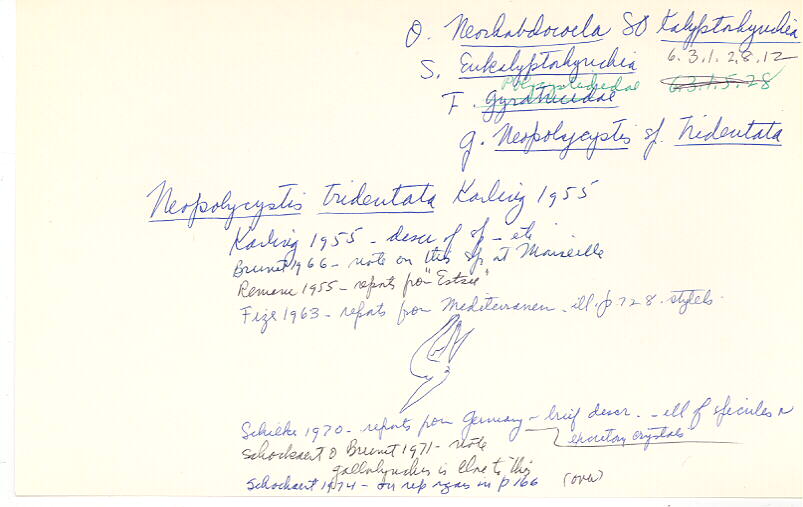 O. Neorhabdocoela SO Kalyptorhynchia
6.3.1.2.8.12
S. Eukalyptorhynchia
Polycystididae 6.3.1.5.28
F. Gyratricidae
g. Neopolycystis sp. Tridentata
Neopolycystis tridentata Karling 1955
Karling 1955 - descr of sp - etc
Brunet 1966 - note on this sp at Marseille
Remane 1955 - reports from "Estsee"
Fize 1963 - reports from Mediterranean - ill. p 728 - stylets.
Schilke 1970 - reports from Germany - brief descr. - ill of spicules
excretory crystals
Schockaert & Brunet 1971 - note
gallorhynchus is close to this
Schockaert 1974 - on rep orgas in p 166 (over)